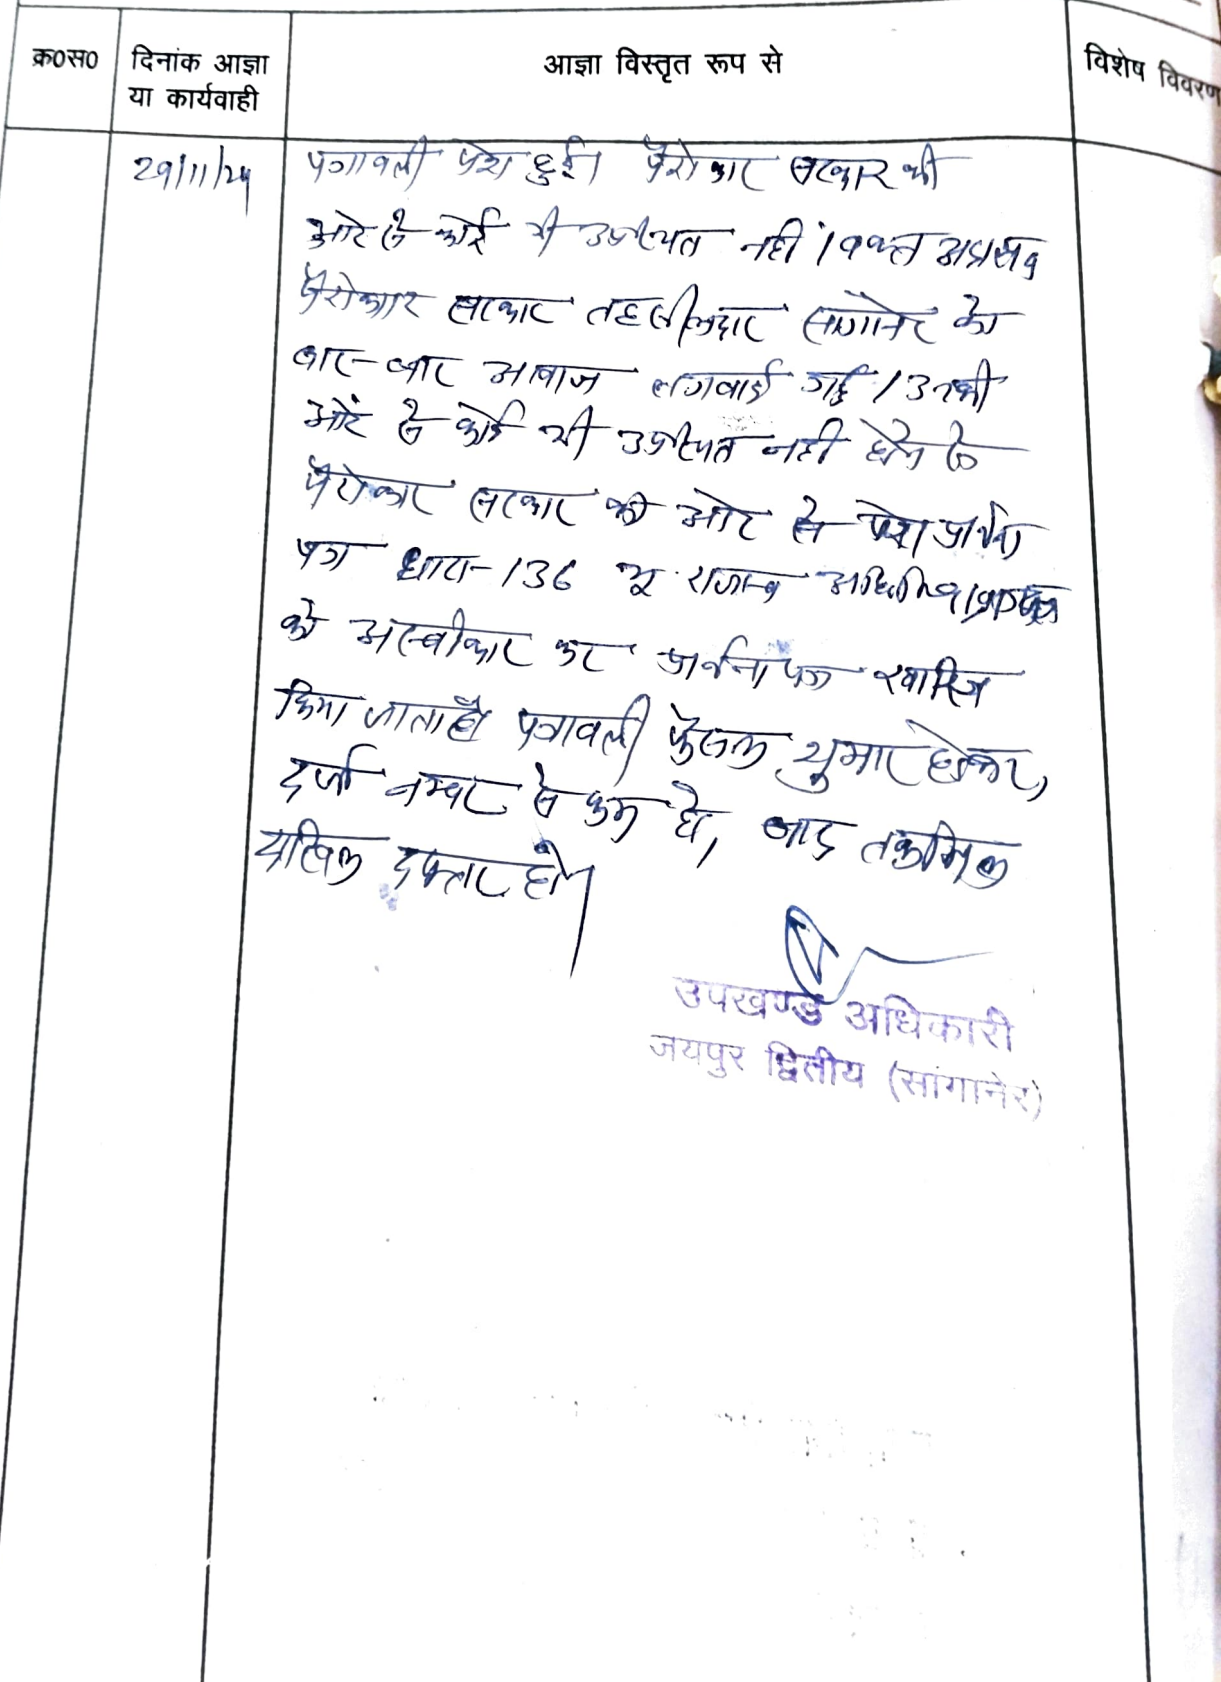 क्र०स०
दिनांक आज्ञा
या कार्यवाही
आज्ञा विस्तृत रूप से
विशेष विवरण
29/11/24
पत्रावली पेश हुई। पैरोकार सरकार की
ओर से कोई भी उपस्थित नहीं। वक्त
पैरोकार सरकार तहसीलदार सांगानेर को
बार-बार आवाज लगवाई गई। उनकी
ओर से कोई भी उपस्थित नही होने से
पैरोकार सरकार की ओर से पेश प्रार्थना
पत्र धारा-136 भू राजस्व
को अस्वीकार कर प्रार्थना पत्र खारिज
किया जाता है। पत्रावली फैसल शुमार होकर,
दर्ज नम्बर से कम हो, बाद तकमिल
दाखिल दफ्तर हो।
उपखण्ड अधिकारी
जयपुर द्वितीय (सांगानेर)